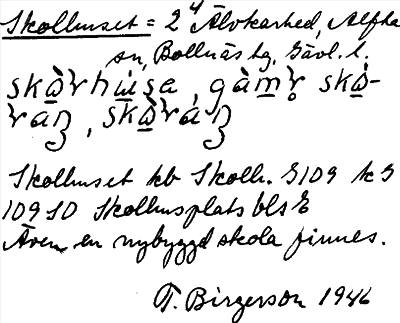 Skolhuset = 2⁴ Älvkarhed, Alfta
sn, Bollnäs tg, Gävl. l.
skɷ̀rhu̲sə, gàm̲r̥ skɷ̀-
ran, skɷ̀ran
Skolhuset kb Skolh. G109 k G
109 SO Skolhusplats bls E
Även en nybyggd skola finnes.
T. Birgerson 1946